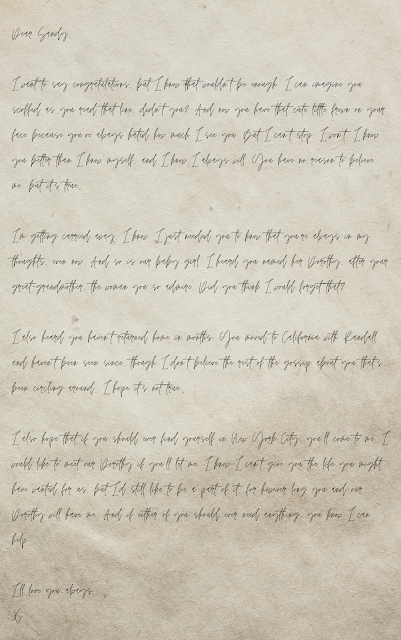 Dear Sandy,
I want to say congratulations, but I know that wouldn't be enough. I can imagine you
scoffed as you read that line, didn't you? And now you have that cute little frown on your
face because you've always hated how much I see you. But I can't stop. I won't. I know
you better than I know myself, and I know I always will. You have no reason to believe
me, but it's true.
I'm getting carried away, I know. I just needed you to know that you're always in my
thoughts, even now. And so is our baby girl. I heard you named her Dorothy, after your
great-grandmother, the woman you so admire. Did you think I would forget that?
I also heard you haven't returned home in months. You moved to California with Randall
and haven't been seen since, though I don't believe the rest of the gossip about you that's
been circling around. I hope it's not true.
I also hope that if you should ever find yourself in New York City, you'll come to me. I
would like to meet our Dorothy if you'll let me. I know I can't give you the life you might
have wanted for us, but I'd still like to be a part of it, for however long you and our
Dorothy will have me. And if either of you should ever need anything, you know I can
help.
I'll love you always,